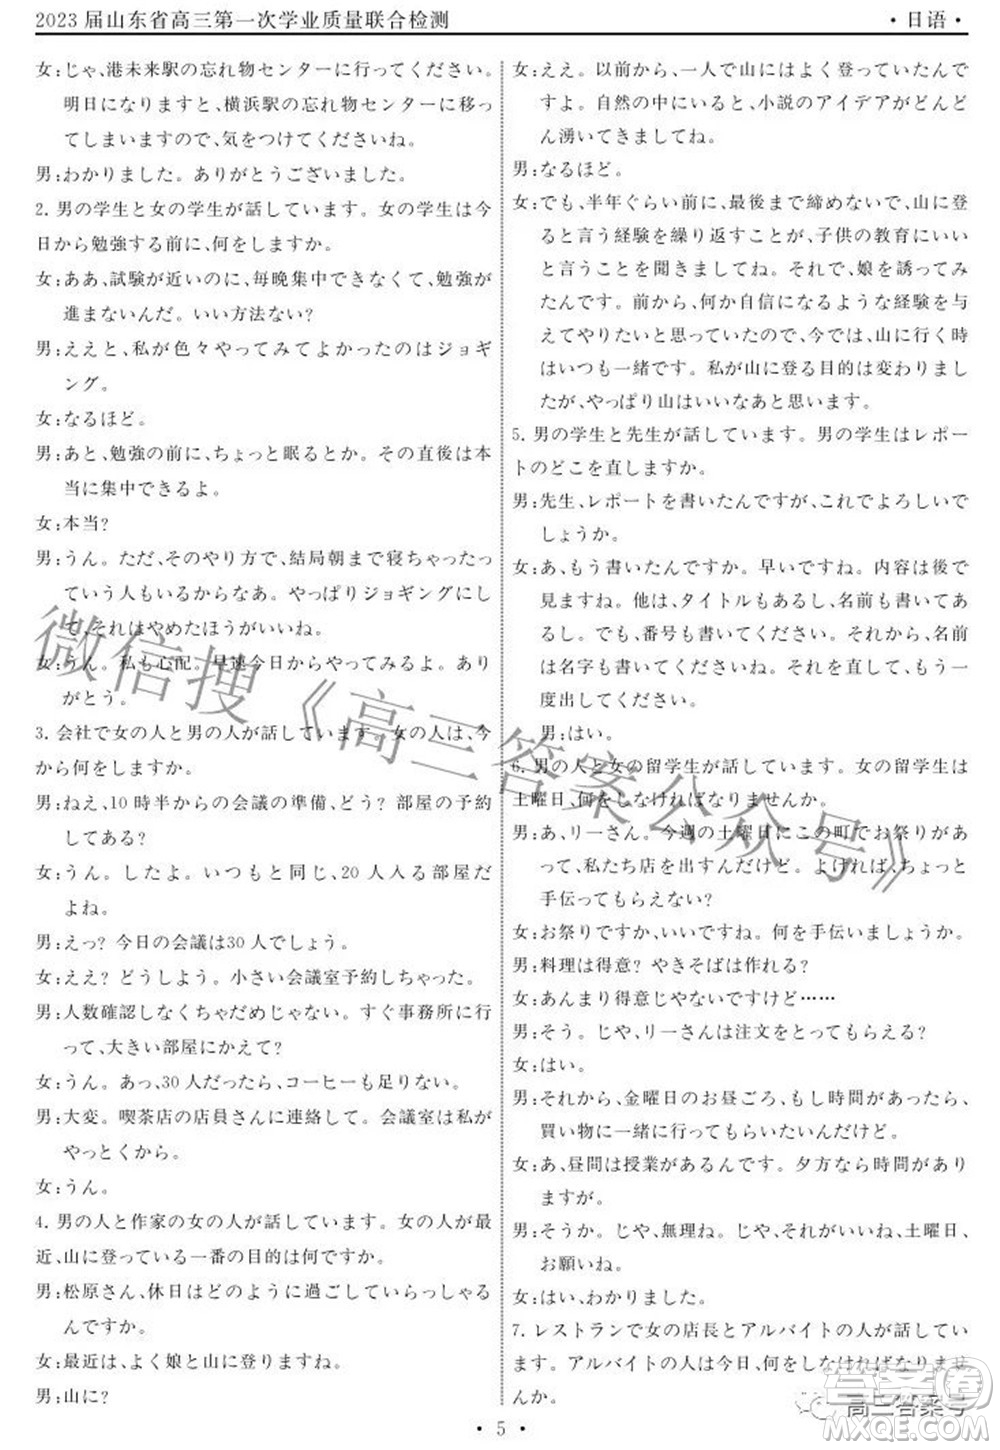 2023届山东省高三第一次学业质量联合检测
·日语·
女:じゃ、港未来駅の忘れ物センターに行ってください。
明日になりますと、横浜駅の忘れ物センターに移っ
てしまいますので、気をつけてくださいね。
男:わかりました。ありがとうございました。
2. 男の学生と女の学生が話しています。女の学生は今
日から勉強する前に、何をしますか。
女:ああ、試験が近いのに、毎晩集中できなくて、勉強が
進まないんだ。いい方法ない?
男:ええと、私が色々やってみてよかったのはジョギ
ング。
女:なるほど。
男:あと、勉強の前に、ちょっと眠るとか。その直後は本
当に集中できるよ。
女:本当?
男:うん。ただ、そのやり方で、結局朝まで寝ちゃったっ
ていう人もいるからなあ。やっぱりジョギングにし
て、それはやめたほうがいいね。
女:うん。私も心配。早速今日からやってみるよ。あり
がとう。
3. 会社で女の人と男の人が話しています。女の人は、今
から何をしますか。
男:ねえ、10時半からの会議の準備、どう? 部屋の予約
してある?
女:うん。したよ。いつもと同じ、20人入る部屋だ
よね。
男:えっ? 今日の会議は30人でしょう。
女:ええ? どうしよう。小さい会議室予約しちゃった。
男:人数確認しなくちゃだめじゃない。すぐ事務所に行
って、大きい部屋にかえて?
女:うん。あっ、30人だったら、コーヒーも足りない。
男:大変。喫茶店の店員さんに連絡して。会議室は私が
やっとくから。
女:うん。
4. 男の人と作家の女の人が話しています。女の人が最
近、山に登っている一番の目的は何ですか。
男:松原さん、休日はどのように過ごしていらっしゃる
んですか。
女:最近は、よく娘と山に登りますね。
男:山に?
女:ええ。以前から、一人で山にはよく登っていたんで
すよ。自然の中にいると、小説のアイデアがどんど
ん湧いてきましてね。
男:なるほど。
女:でも、半年ぐらい前、最後まで締めないで、山に登
ると言う経験を繰り返すことが、子供の教育にいい
と言うことを聞きましてね。それで、娘を誘ってみ
たんです。前から、何か自信になるような経験を与
えてやりたいと思っていたので、今では、山に行く時
はいつも一緒です。私が山に登る目的は変わりまし
たが、やっぱり山はいいなあと思います。
5. 男の学生と先生が話しています。男の学生はレポー
トのどこを直しますか。
男:先生、レポートを書いたんですが、これでよろしいで
しょうか。
女:あ、もう書いたんですか。早いですね。内容は後で
見ますね。他は、タイトルもあるし、名前も書いてあ
るし。でも、番号も書いてください。それから、名前
は名字も書いてくださいね。それを直して、もう一
度出してください。
男:はい。
6. 男の人と女の留学生が話しています。女の留学生は
土曜日、何をしなければなりませんか。
男:あ、リーさん。今週の土曜日にこの町でお祭りがあ
って、私たち店を出すんだけど。よければ、ちょっと
手伝ってもらえない?
女:お祭りですか、いいですね。何を手伝いましょうか。
男:料理は得意? やきそばは作れる?
女:あんまり得意じゃないですけど……
男:そう。じゃ、リーさんは注文をとってもらえる?
女:はい。
男:それから、金曜日のお昼ごろ、もし時間があったら、
買い物に一緒に行ってもらいたいんだけど。
女:あ、昼間は授業があるんです。夕方なら大丈夫で
すが。
男:そうか。じゃ、無理ね。じゃ、それがいいね、土曜日、
お願いね。
女:はい、わかりました。
7. レストランで女の店長とアルバイトの人が話してい
ます。アルバイトの人は今日、何をしなければなりませ
んか。
· 5 ·
微信搜《高三答案公众号》
高三答案号
答案圈
MXQE.COM